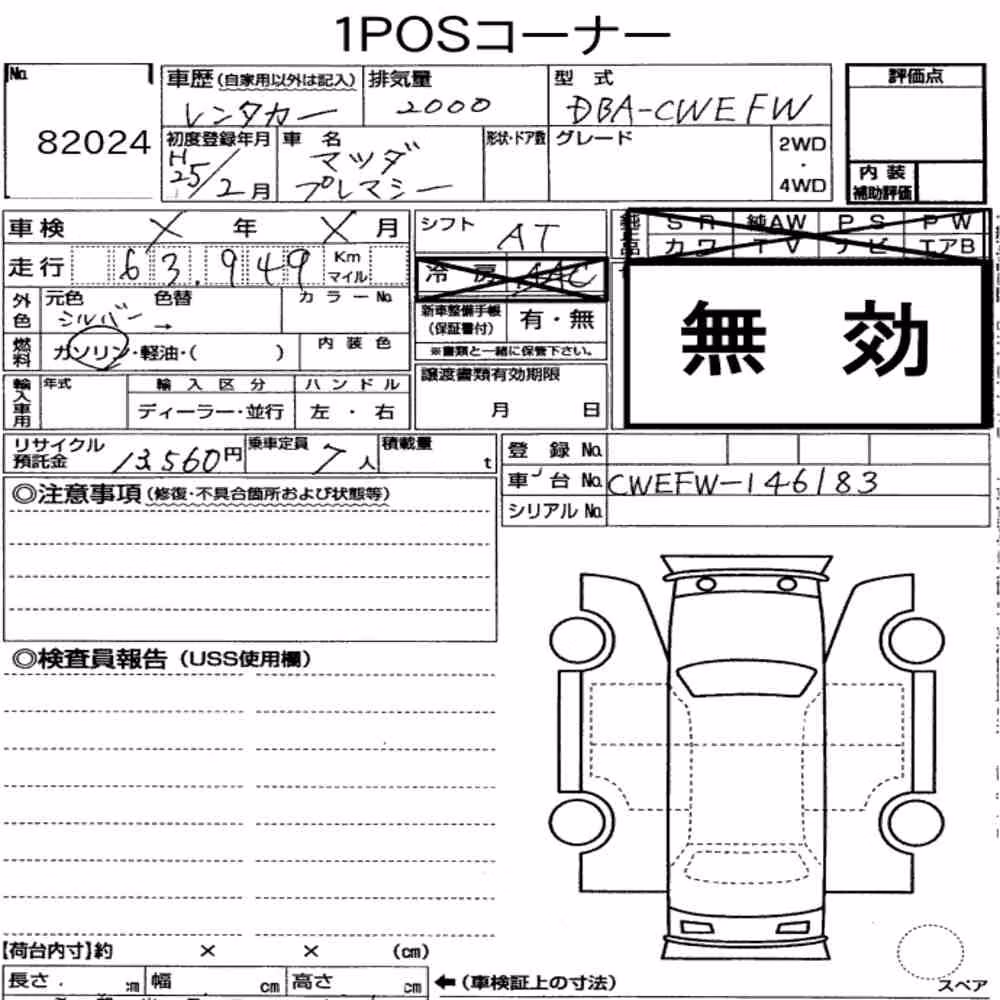 1POSコーナー
No.
82024
車歴(自家用以外は記入)
レンタカー
排気量
2000
型 式
DBA-CWEFW
評価点
初度登録年月
H
25/2月
車 名
マツダ
プレマシー
形状・ドア数
グレード
2WD
・
4WD
内 装
補助評価
車検 X 年 X 月
シフト
AT
純正品
S R 純AW P S P W
カワ TV ナビ エアB
走行 63,949 Km
マイル
冷 房 AAC
外色
元色
シルバー
色替
→
カラーNo.
新車整備手帳
(保証書付)
有・無
※書類と一緒に保管下さい。
無 効
燃料
ガソリン・軽油・( )
内装色
輸入車用
年式
輸入区分
ディーラー・並行
ハンドル
左 ・ 右
譲渡書類有効期限
月 日
リサイクル
預託金
13,560円
乗車定員
7人
積載量
t
登 録 No.
車 台 No. CWEFW-146183
シリアル No.
◎注意事項(修復・不具合箇所および状態等)
◎検査員報告(USS使用欄)
【荷台内寸】約 × × (cm)
長さ cm 幅 cm 高さ cm
←(車検証上の寸法)
スペア